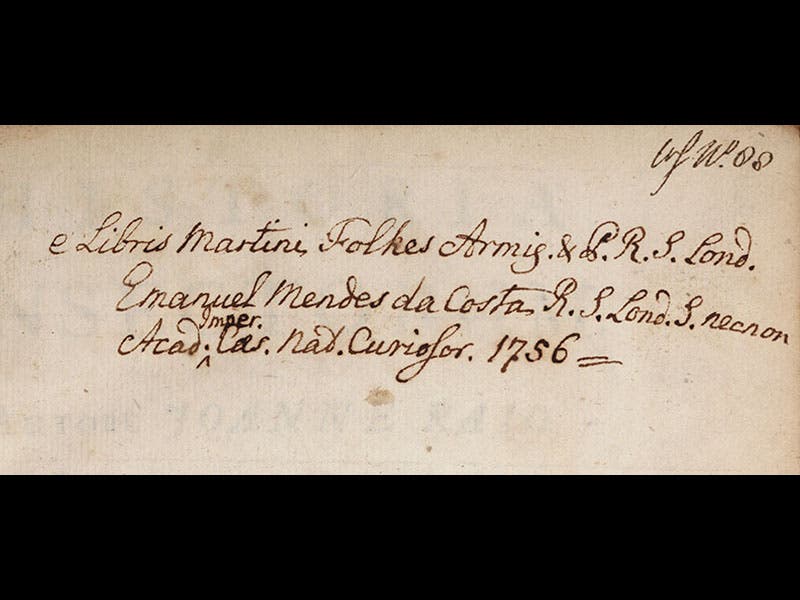 Nº. 88
e Libris Martini Folkes Armig. & P. R. S. Lond.
Emanuel Mendes da Costa R. S. Lond. S. necnon
Imper.
Acad. ‸ Cæs. Nat. Curiosor. 1756